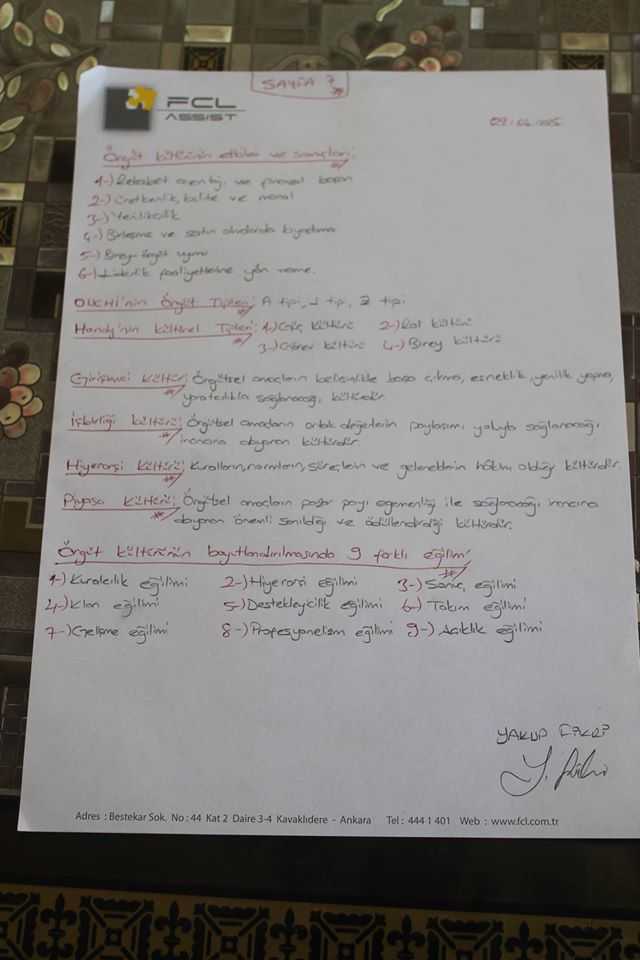 SAYFA 7
FCL
ASSIST
Örgüt kültürünün etkileri ve sonuçları;
1-) Rekabet avantajı ve finansal başarı
2-) Üretkenlik, kalite ve moral
3-) Yenilikçilik
4-) Birleşme ve satın almalarda kıymetlenme
5-) Birey-örgüt uyumu
6-) Liderlik faaliyetlerine yön verme.
OUCHI'nin Örgüt Tipleri; A tipi, J tipi, Z tipi
Handy'nin kültürel Tipleri; 1-) Güç kültürü 2-) Rol kültürü
3-) Görev kültürü 4-) Birey kültürü
Girişimci kültür; Örgütsel amaçların belirsizlikle başa çıkma, esneklik, yenilik yapma,
yaratıcılıkla sağlanacağı kültürdür.
İşbirliği kültürü; Örgütsel amaçların ortak değerlerin paylaşımı yoluyla sağlanacağı
inancına dayanan kültürdür.
Hiyerarşi kültürü; Kuralların, normların, süreçlerin ve geleneklerin hâkim olduğu kültürdür.
Piyasa kültürü; Örgütsel amaçların pazar payı egemenliği ile sağlanacağı inancına
dayanan önemli sanıldığı ve ödüllendirdiği kültürdür.
Örgüt kültürünün boyutlandırılmasında 9 farklı eğilim;
1-) Kuralcılık eğilimi 2-) Hiyerarşi eğilimi 3-) Sonuç eğilimi
4-) Klan eğilimi 5-) Destekleyicilik eğilimi 6-) Takım eğilimi
7-) Gelişme eğilimi 8-) Profesyonelizm eğilimi 9-) Açıklık eğilimi
YAKUP
Adres : Bestekar Sok. No : 44 Kat 2 Daire 3-4 Kavaklıdere - Ankara Tel : 444 1 401 Web : www.fcl.com.tr